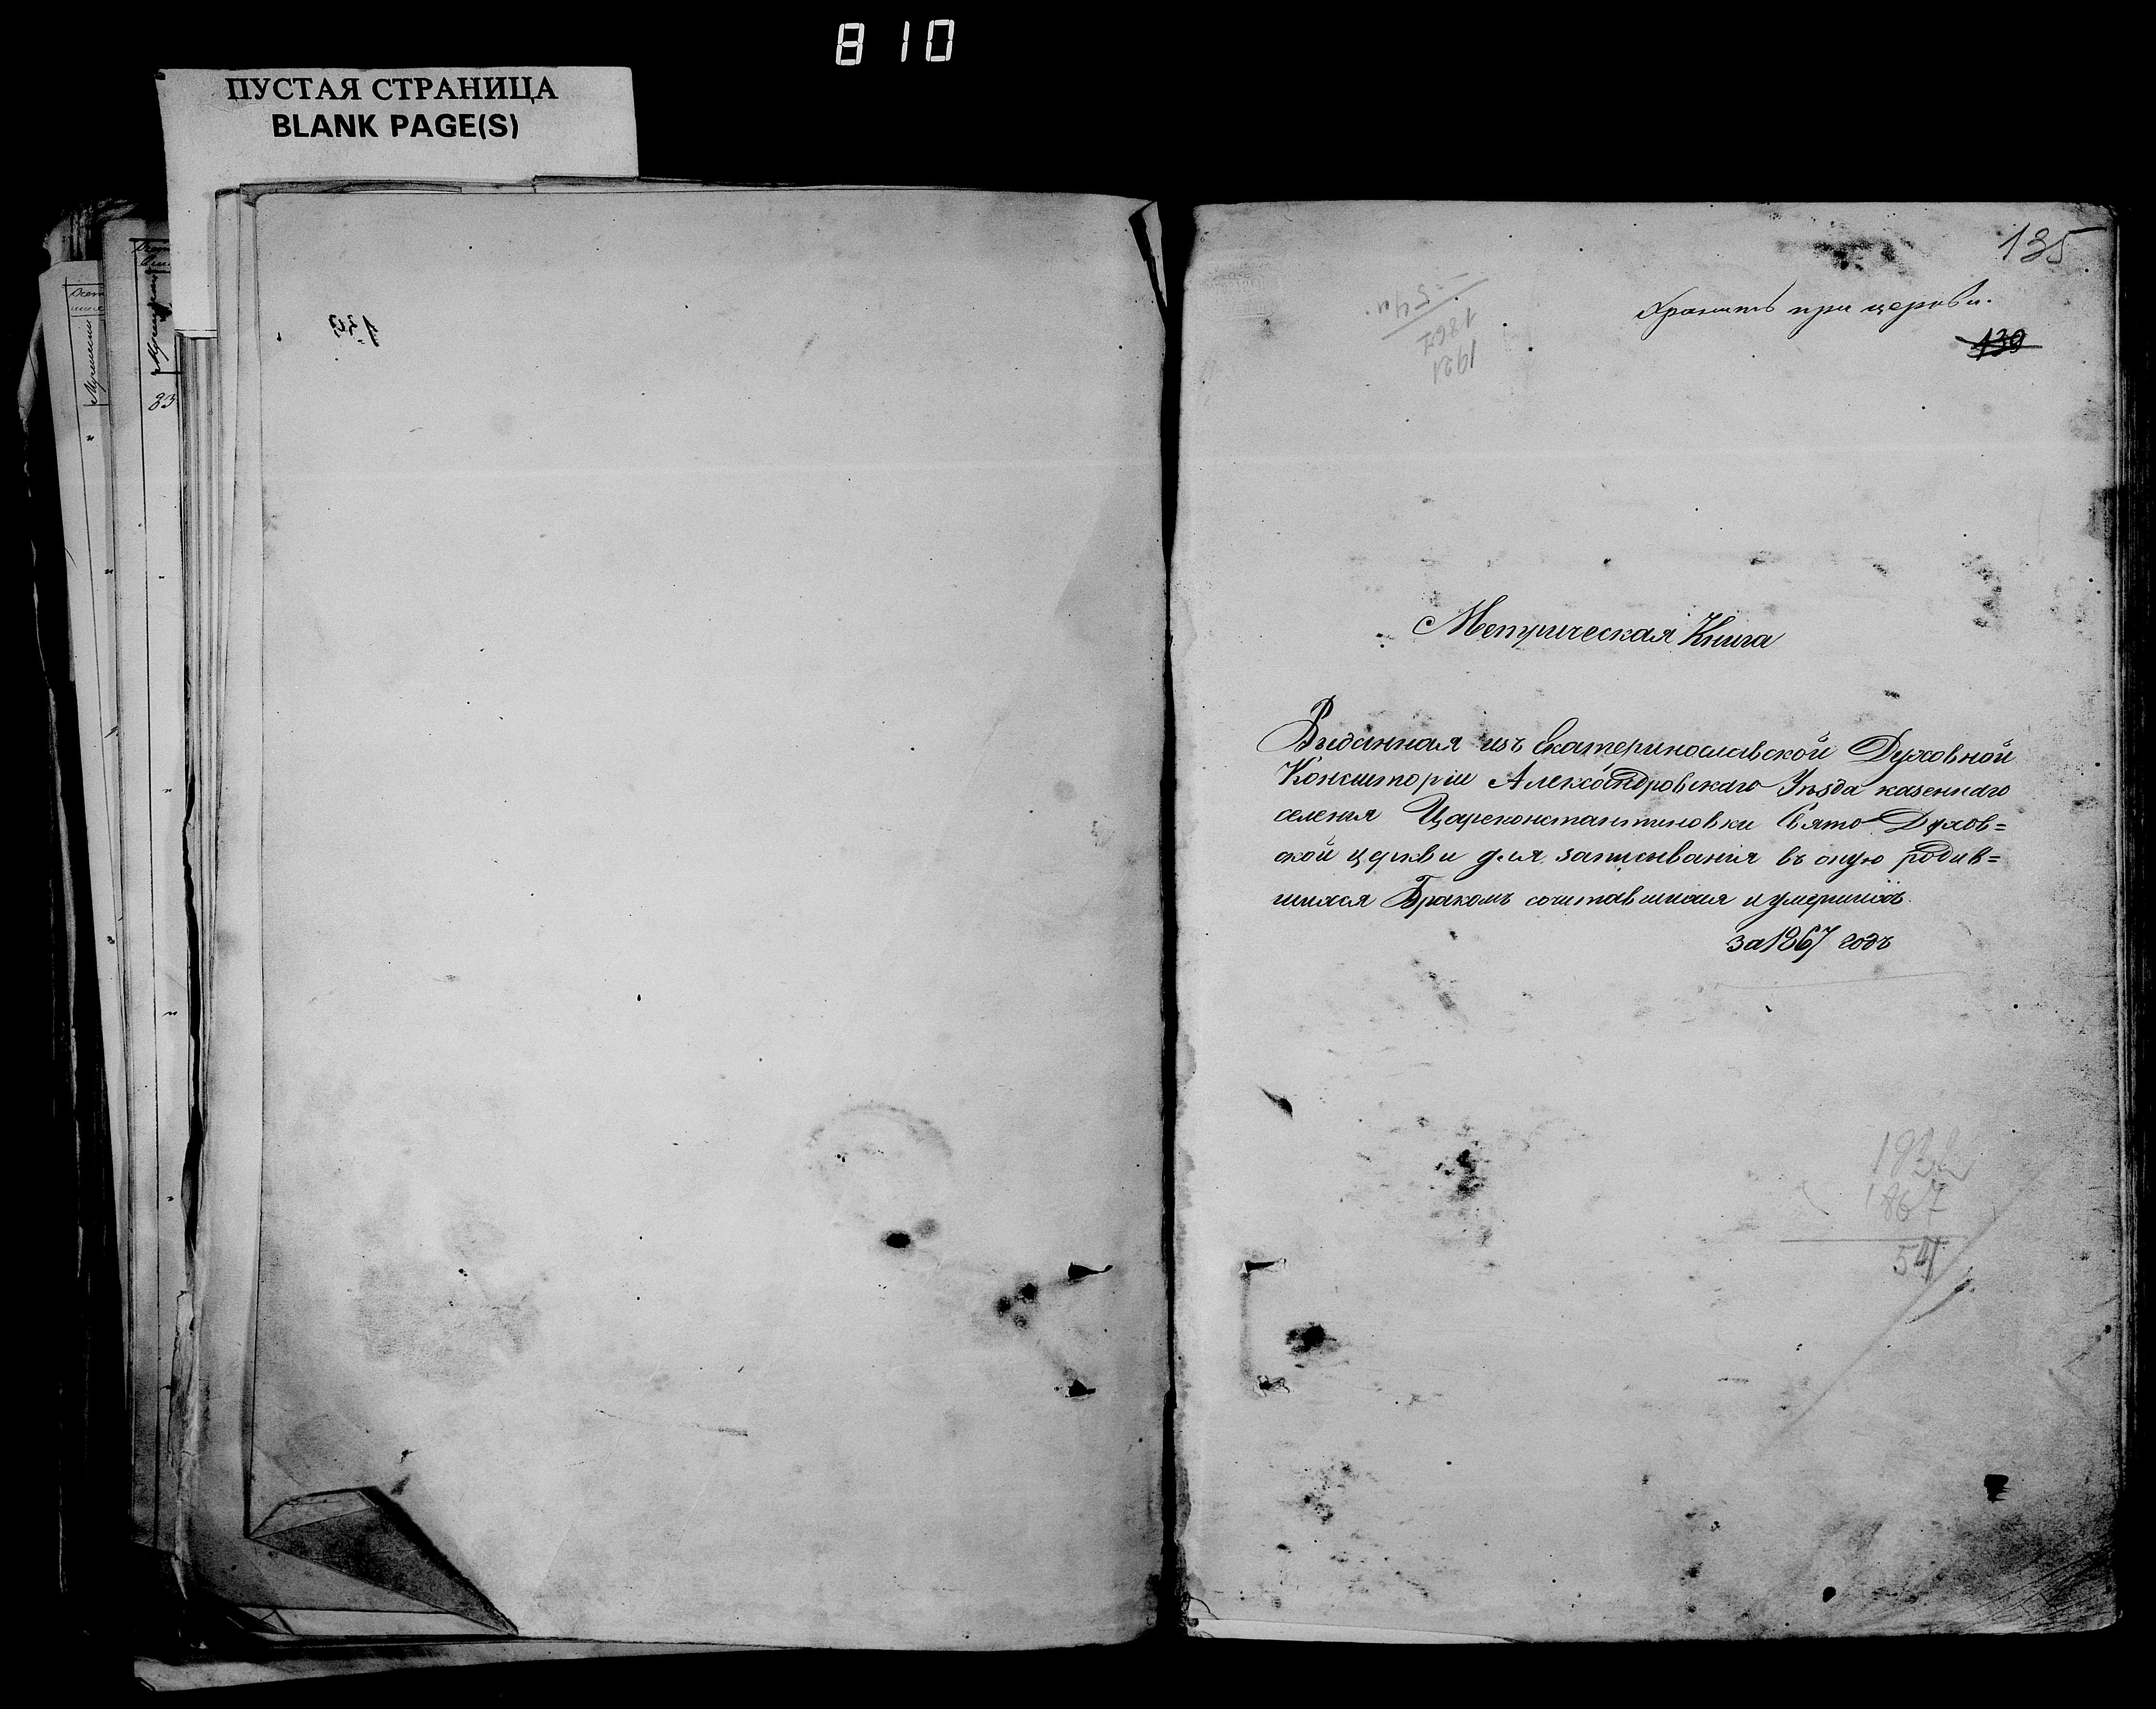 810
ПУСТАЯ СТРАНИЦА
BLANK PAGE(S)
135
Хранить при церкви.
139
1921
1867
54
Метрическая Книга
Выданная изъ Екатеринославской Духовной
Консисторіи Александровскаго Уѣзда казеннаго
селенія Цареконстантиновки Свято Духов=
ской церкви для записыванія въ оную родив=
шихся Бракомъ сочитавшихся и умершихъ
за 1867 годъ
1867
54